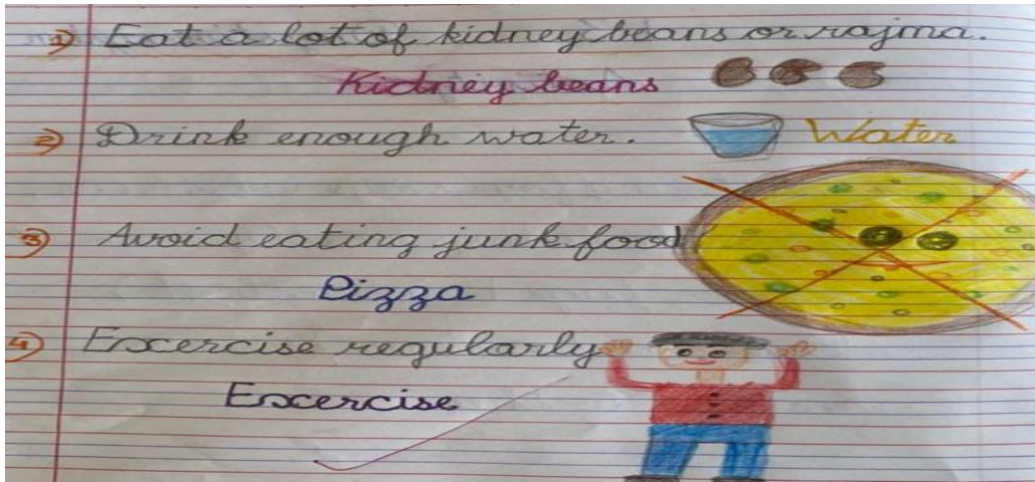 1) Eat a lot of kidney beans or rajma.
Kidney beans
2) Drink enough water.
Water
3) Avoid eating junk food
Pizza
4) Excercise regularly
Excercise